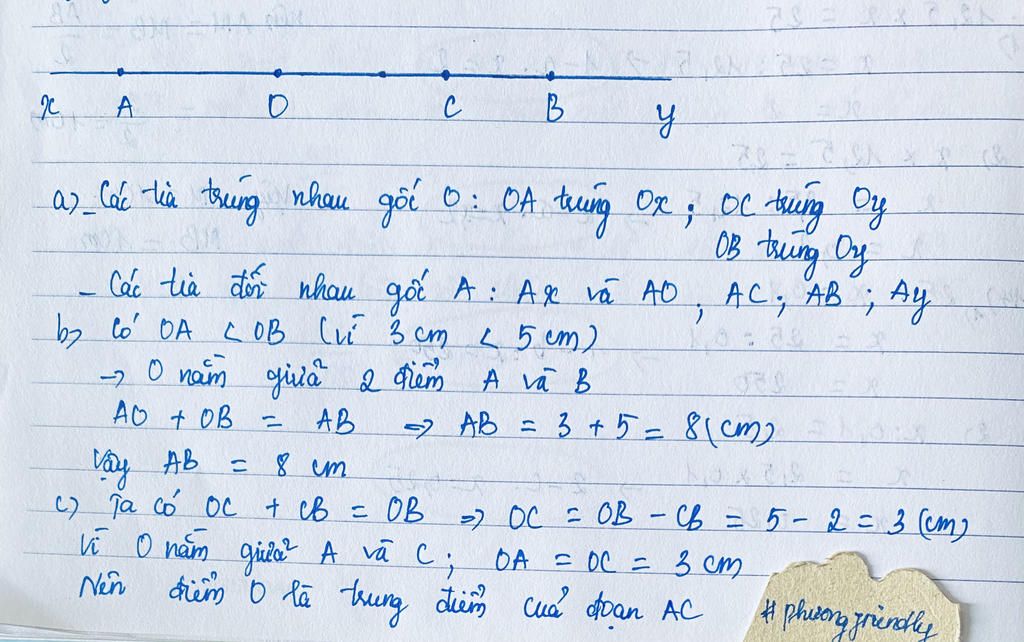 x A O C B y
a) - Các tia trùng nhau gốc O : OA trùng Ox ; OC trùng Oy
OB trùng Oy
- Các tia đối nhau gốc A : Ax và AO, AC; AB ; Ay
b) Có OA < OB (vì 3 cm < 5 cm)
→ O nằm giữa 2 điểm A và B
AO + OB = AB ⇒ AB = 3 + 5 = 8 (cm)
Vậy AB = 8 cm
c) Ta có OC + CB = OB ⇒ OC = OB - CB = 5 - 2 = 3 (cm)
Vì O nằm giữa A và C ; OA = OC = 3 cm
Nên điểm O là trung điểm của đoạn AC
#phuongfriendly